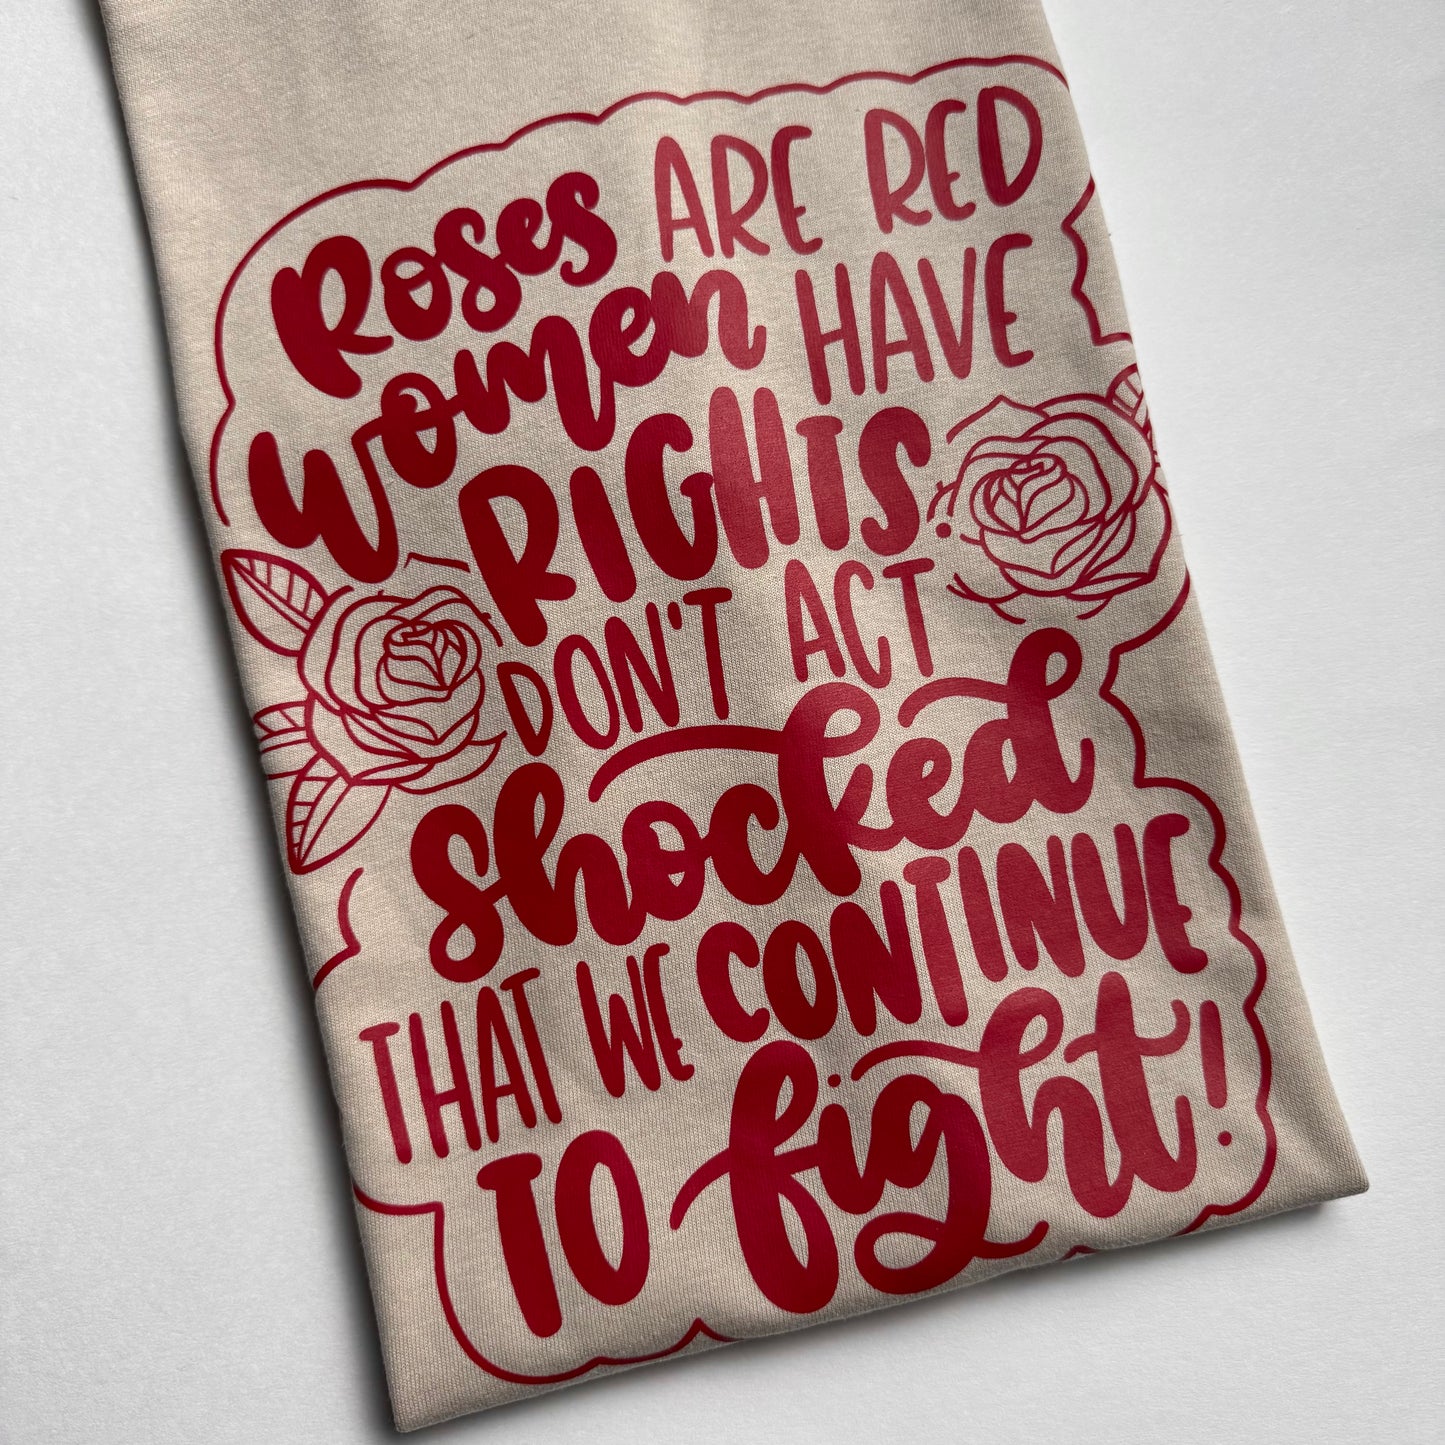 Roses ARE RED
women HAVE
RIGHTS.
DON'T ACT
shocked
THAT WE CONTINUE
TO fight!